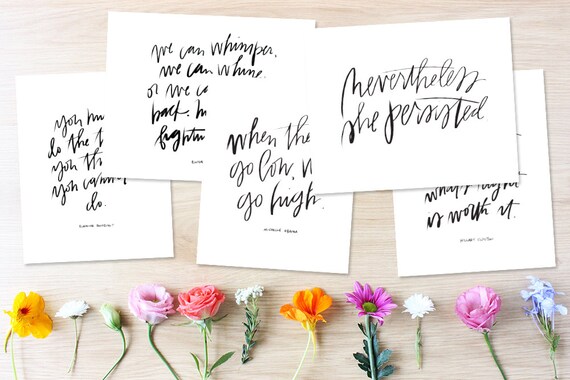 you
do the
you
you
do.
ELEANOR ROOSEVELT
we can whimper,
we can whine.
or we
back.
when
go low,
go high.
MICHELLE OBAMA
nevertheless
she persisted
is worth it.
HILLARY CLINTON